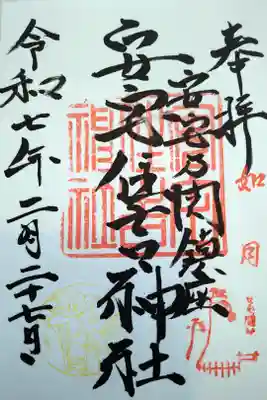 奉拝
如月
安宅乃関鎮座
安宅住吉神社
令和七年二月二十七日